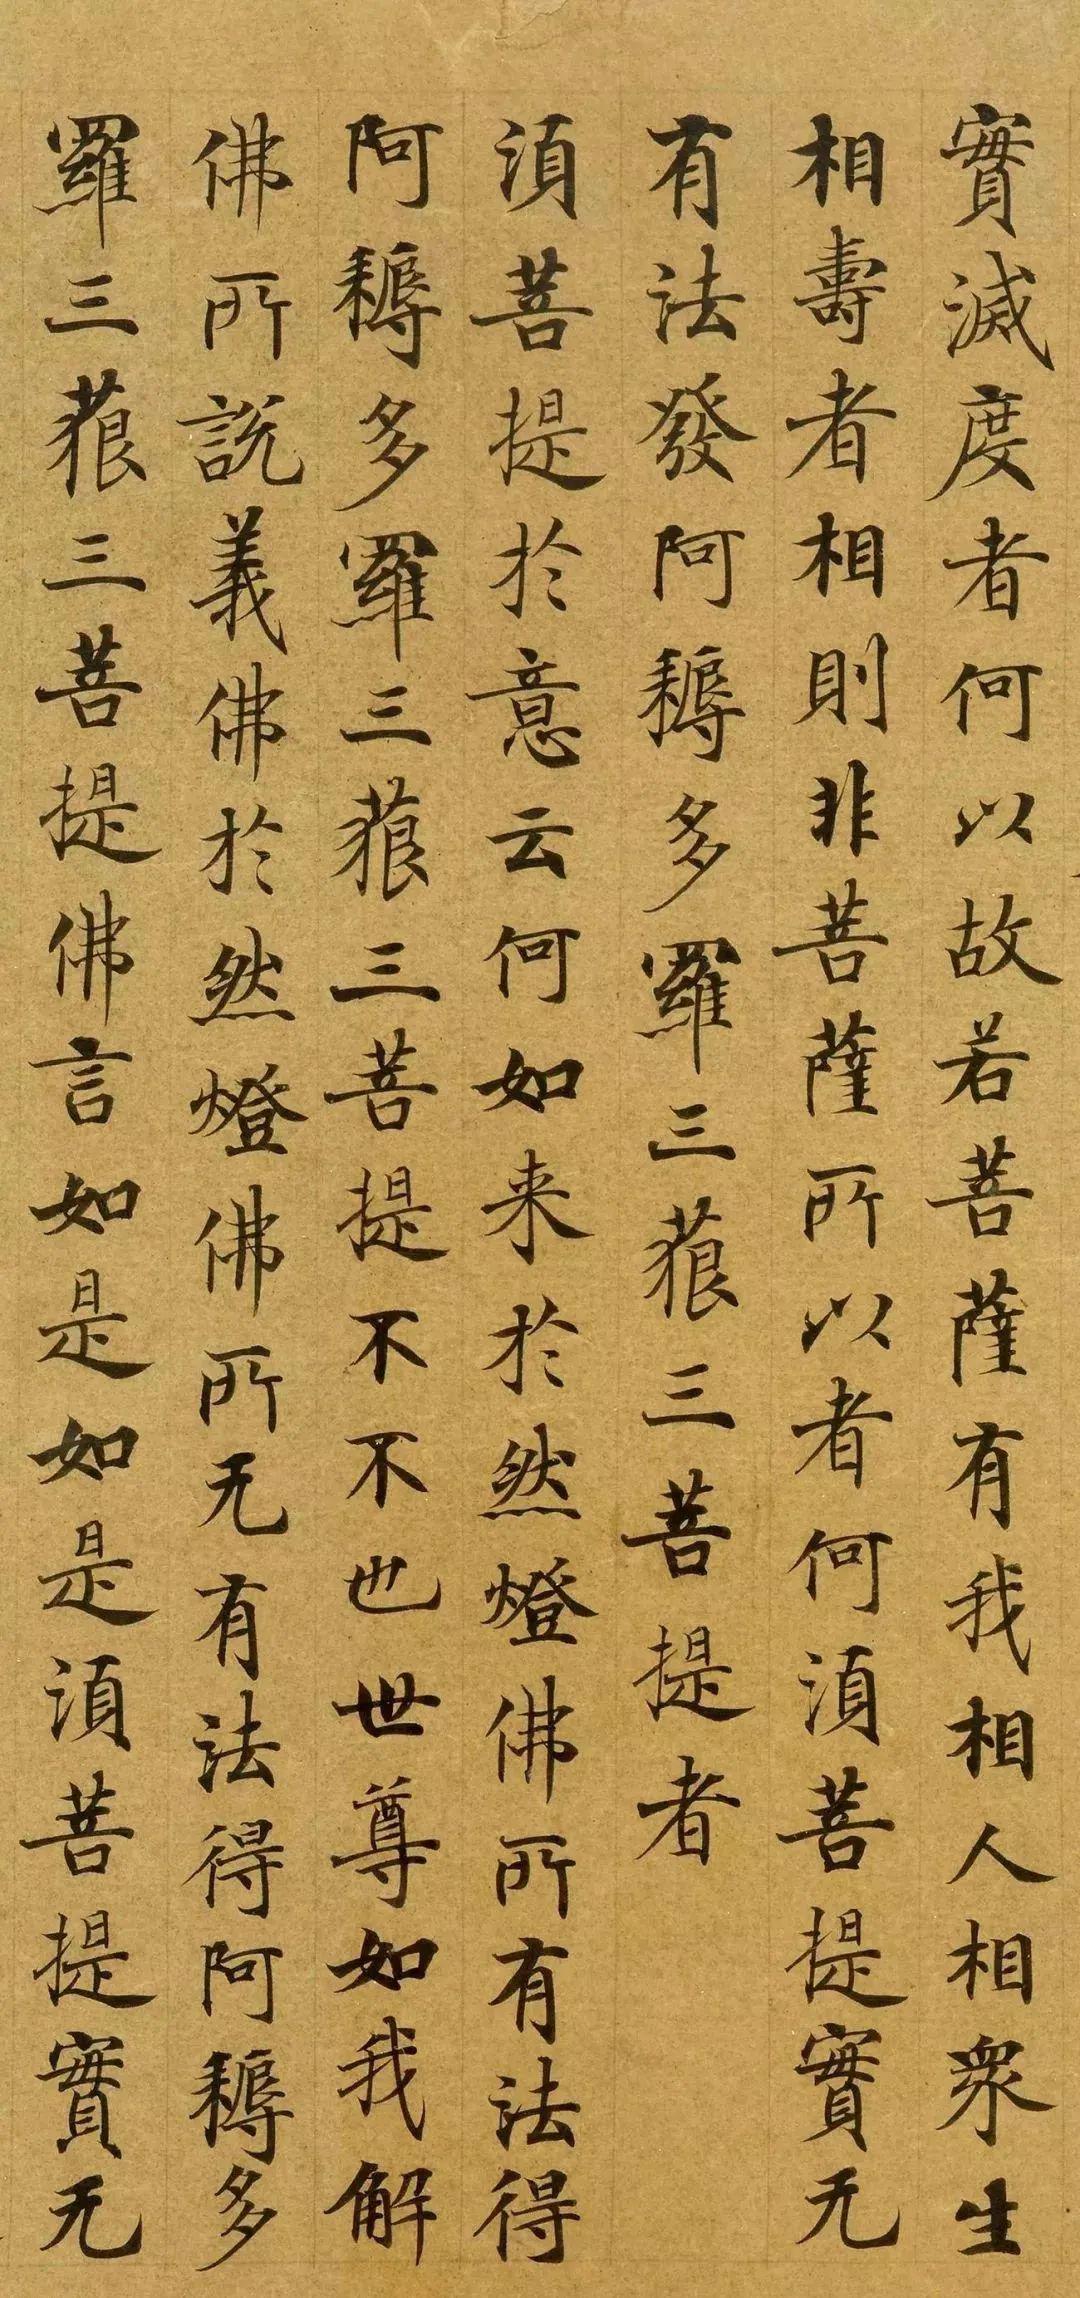 實滅度者何以故若菩薩有我相人相眾生
相壽者相則非菩薩所以者何須菩提實无
有法發阿耨多羅三藐三菩提者
須菩提於意云何如来於然燈佛所有法得
阿耨多羅三藐三菩提不不也世尊如我解
佛所說義佛於然燈佛所无有法得阿耨多
羅三藐三菩提佛言如是如是須菩提實无